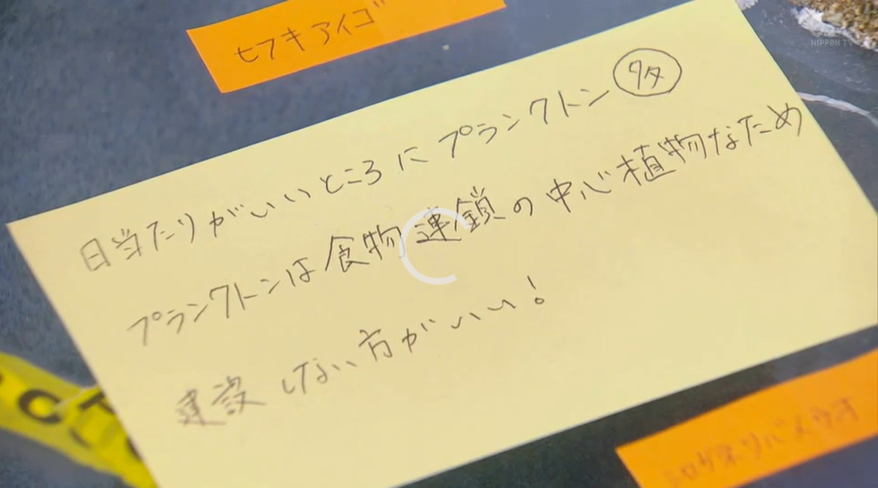 ヒフキアイゴ
NIPPON TV
日当たりがいいところにプランクトン多
プランクトンは食物連鎖の中心植物なため
建設しない方がいい!
CT